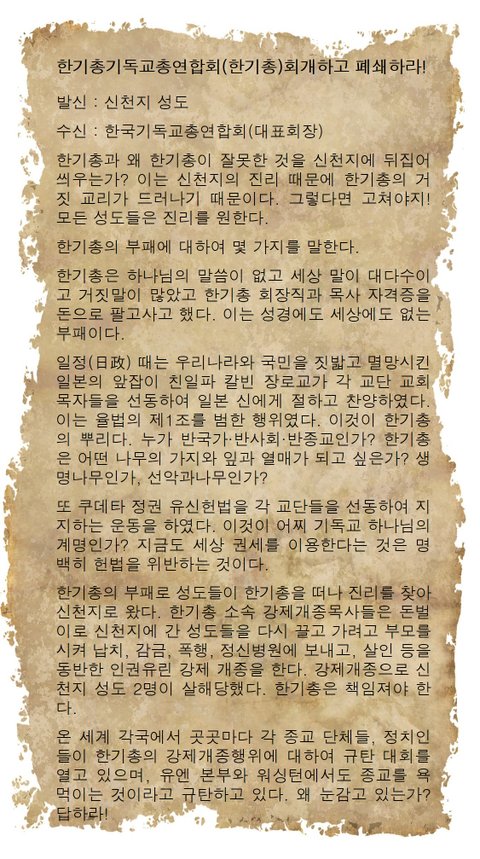 한기총기독교총연합회(한기총)회개하고 폐쇄하라!
발신 : 신천지 성도
수신 : 한국기독교총연합회(대표회장)
한기총과 왜 한기총이 잘못한 것을 신천지에 뒤집어
씌우는가? 이는 신천지의 진리 때문에 한기총의 거
짓 교리가 드러나기 때문이다. 그렇다면 고쳐야지!
모든 성도들은 진리를 원한다.
한기총의 부패에 대하여 몇 가지를 말한다.
한기총은 하나님의 말씀이 없고 세상 말이 대다수이
고 거짓말이 많았고 한기총 회장직과 목사 자격증을
돈으로 팔고사고 했다. 이는 성경에도 세상에도 없는
부패이다.
일정(日政) 때는 우리나라와 국민을 짓밟고 멸망시킨
일본의 앞잡이 친일파 칼빈 장로교가 각 교단 교회
목자들을 선동하여 일본 신에게 절하고 찬양하였다.
이는 율법의 제1조를 범한 행위였다. 이것이 한기총
의 뿌리다. 누가 반국가·반사회·반종교인가? 한기총
은 어떤 나무의 가지와 잎과 열매가 되고 싶은가? 생
명나무인가, 선악과나무인가?
또 쿠데타 정권 유신헌법을 각 교단들을 선동하여 지
지하는 운동을 하였다. 이것이 어찌 기독교 하나님의
계명인가? 지금도 세상 권세를 이용한다는 것은 명
백히 헌법을 위반하는 것이다.
한기총의 부패로 성도들이 한기총을 떠나 진리를 찾아
신천지로 왔다. 한기총 소속 강제개종목사들은 돈벌
이로 신천지에 간 성도들을 다시 끌고 가려고 부모를
시켜 납치, 감금, 폭행, 정신병원에 보내고, 살인 등을
동반한 인권유린 강제 개종을 한다. 강제개종으로 신
천지 성도 2명이 살해당했다. 한기총은 책임져야 한
다.
온 세계 각국에서 곳곳마다 각 종교 단체들, 정치인
들이 한기총의 강제개종행위에 대하여 규탄 대회를
열고 있으며, 유엔 본부와 워싱턴에서도 종교를 욕
먹이는 것이라고 규탄하고 있다. 왜 눈감고 있는가?
답하라!